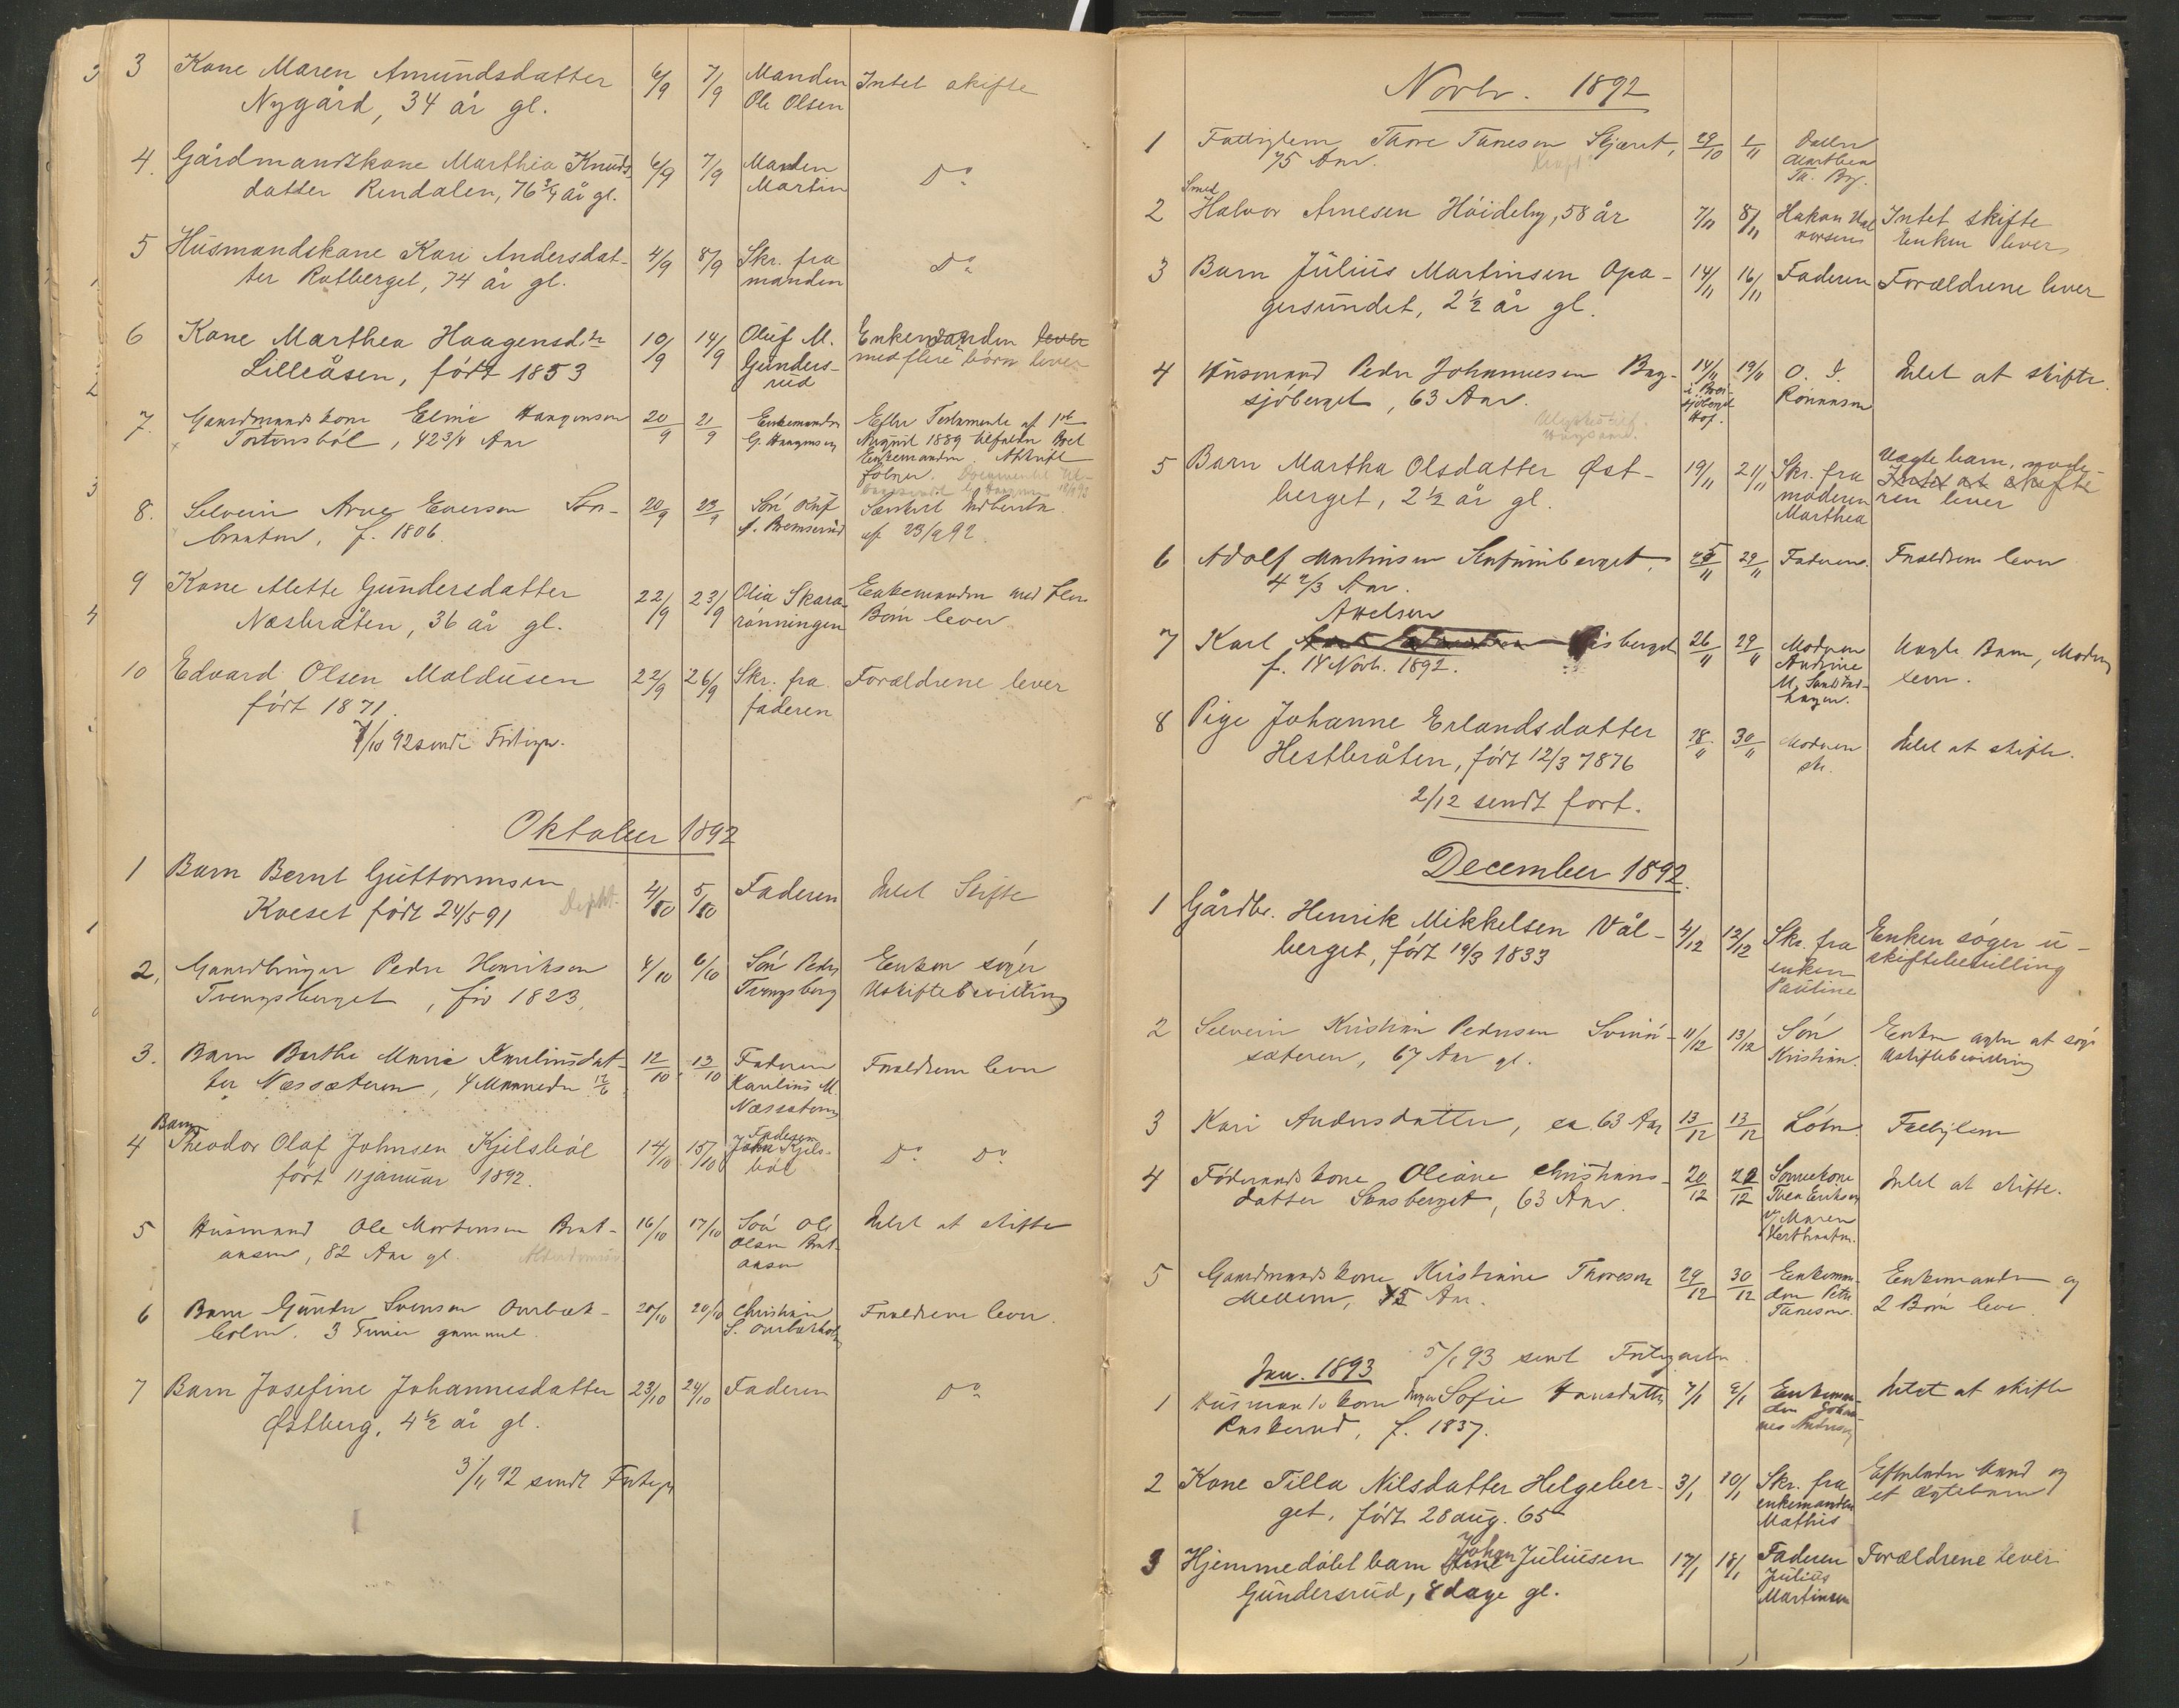 3 Kone Maren Amundsdatter 6/9 7/9 Manden Intet skifte
Nygård, 34 år gl. Ole Olsen
4. Gårdmandskone Marthia Knuds- 6/9 7/9 Manden Do
datter Rendalen, 76 3/4 år gl. Martin
5 Husmandskone Kari Andersdat- 4/9 8/9 Skr. fra Do
ter Rotberget, 74 år gl. manden
6 Kone Marthea Haagensd.tr 10/9 14/9 Oluf M. Enkemanden lever
Lilleåsen, født 1853 Gunders- med flere børn lever
rud
7. Gaardmandskone Eline Haagensen 20/9 21/9 Enkemanden Efter Testamente af 1ste
Tortensbøl, 42 3/4 Aar G. Haagensen August 1889 tilfalder Boet
Enkemanden. Afskrift
følger.
8. Selveier Arne Eversen 20/9 23/9 Søn Oluf Særskilt Indberetn.
braaten, f. 1806. A. Bremserud af 23/9 92.
9 Kone Mette Gundersdatter 22/9 23/9 Olia Skara- Enkemanden med flere
Næsbråten, 36 år gl. rønningen Børn lever
10 Edvard Olsen Moldusen 22/9 26/9 Skr. fra Forældrene lever
født 1871. faderen
7/10 92 sendt Fortegn.
Oktober 1892
1 Barn Bernt Guttormsen 4/10 5/10 Faderen Intet Skifte
Kveset født 24/5 91 Dipht.
2, Gaardbruger Peder Henriksen 4/10 6/10 Søn Peder Enken søger
Tvengsberget, før 1823, Tvengsberg Uskiftebevilling
3. Barn Berthe Marie Karlinusdat- 12/10 13/10 Faderen Forældrene lever
ter Næssæteren, 4 Maaneder 12/6 Karlinus M.
Næssæteren
Barn
4 Theodor Olaf Johnsen Kjelsbøl 14/10 15/10 Faderen Do Do
født 11 januar 1892. John Kjels-
bøl
5 Husmand Ole Mortensen Brat- 16/10 17/10 Søn Ole Intet at skifte
aasen, 82 Aar gl. Olsen Brat-
aasen
6 Barn Gunder Svensen Ourbæk- 20/10 20/10 Christian Forældrene lever.
holm. 3 Timer gammel. S. Ourbækholm
7 Barn Josefine Johannesdatter 23/10 24/10 Faderen Do
Østberg, 4 1/2 år gl.
3/11 92 sendt Fortegn
Novbr. 1892
1 Fattiglem Thore Tanesen Skjæret, 29/10 1/11 Datter
75 Aar. Marthea
Th. Brg.
Smed
2 Halvor Arnesen Höideby, 58 år 7/11 8/11 Hakan Hal Intet skifte
vorsen Enken lever
3 Barn Julius Martinsen Opa- 14/11 16/11 Faderen Forældrene lever
gersundet, 2 1/2 år gl.
4 Husmand Peder Johannesen Bag- 14/11 19/11 O. J. Intet at skifte.
sjøberget, 63 Aar. Rönnusen
Hof.
5 Barn Martha Olsdatter Øst- 19/11 21/11 Skr. fra Uægte barn, mode-
berget, 2 1/2 år gl. moderen Intet at skifte
Marthea ren lever
6 Adolf Martinsen 25/11 29/11 Faderen. Forældrene lever
4 2/3 Aar.
Axelsen
7 Karl isberget 26/11 29/11 Moderen Uægte Barn, Moderen
f. 14 Novb. 1892. Andrine lever.
M.
8 Pige Johanne Erlandsdatter 28/11 30/11 Moderen Intet at skifte.
Hestbråten, født 12/3 1876 skr.
2/12 sendt fort.
December 1892.
1 Gårdbr. Henrik Mikkelsen Vål- 4/12 12/12 Skr. fra Enken søger u-
berget, født 19/3 1833 enken skiftebevilling
Pauline
2 Selveier Kristian Pedersen Svinn- 11/12 13/12 Søn Enken agter at søge
sæteren, 67 Aar gl. Kristian. Uskiftebevilling
3 Kari Andersdatter, ca. 63 Aar 13/12 13/12 Fattiglem
4 Föderaadskone Oleane Christians- 20/12 22/12 Sønnekone Intet at skifte.
datter, 63 Aar. Thea Eriksen
v/ Maren
5 Gaardmandskone Kristiane Thoresen 29/12 30/12 Enkeman- Enkemanden og
Mellem, Aar. den Peter 2 Børn lever
Tanesen.
5/1 93 sendt Fortegnelse
Jan. 1893
1 Husmandskone Inger Sofie Hansdatter 7/1 9/1 Enkeman- Intet at skifte
Raskerud, f. 1837. den Johan-
nes Andersen
2 Kone Tilla Nilsdatter Helgeber- 3/1 10/1 Skr. fra Efterlader Mand og
get, født 28 aug. 65 enkemanden et ægtebarn
Mathis
Johan
3 Hjemmedøbt barn Stine Juliusen 17/1 18/1 Faderen Forældrene lever
Gundersrud, 8 dage gl. Julius
Martinsen